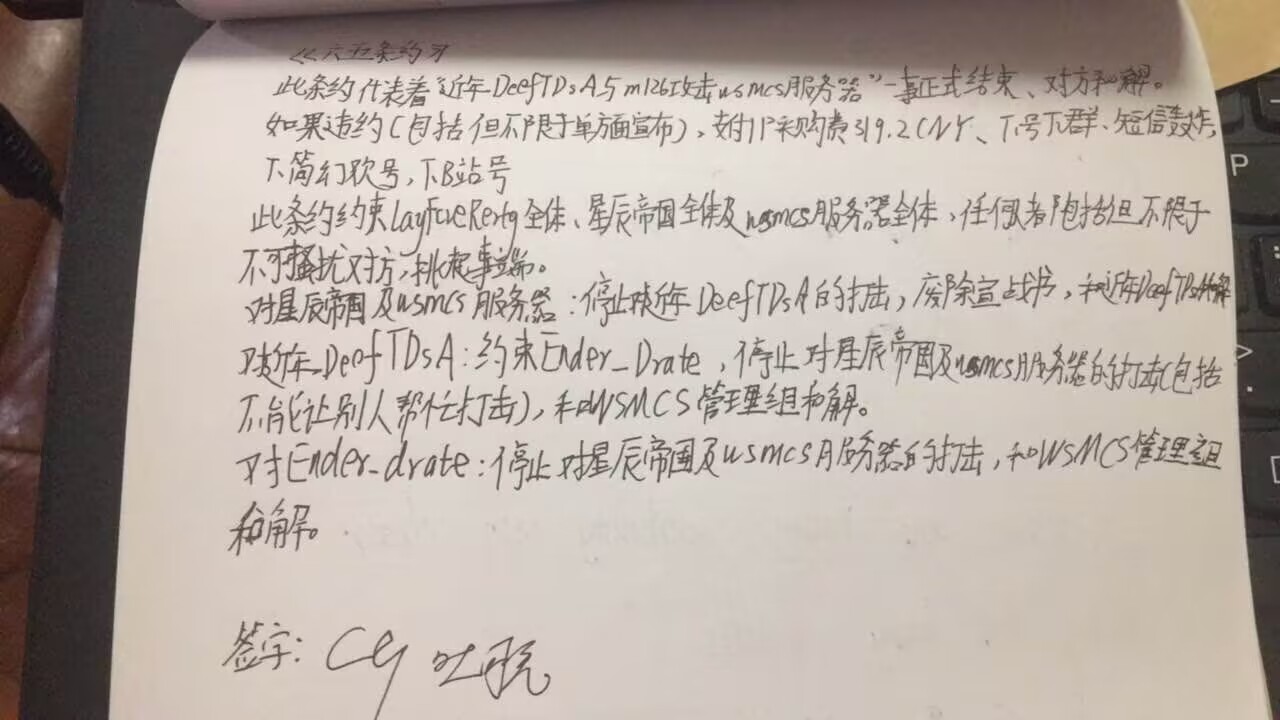 《六五条约》
此条约代表着“近年DeefTDsA与m126攻击wsmcs服务器”一事正式结束、对方和解。
如果违约(包括但不限于单方面宣布)，支付IP采购费319.2CNY、下号下群、短信轰炸，
下简幻欢号，下B站号
此条约约束LayfcueRerty全体、星辰帝国全体及wsmcs服务器全体，任何者包括但不限于
不可骚扰对方，挑起事端。
对星辰帝国及wsmcs服务器：停止对近年DeefTDsA的打击，废除宣战书，和近年DeefTDsA和解
对近年DeefTDsA：约束Ender_Drate，停止对星辰帝国及wsmcs服务器的打击(包括
不能让别人帮忙打击)，和WSMCS管理组和解。
对Ender_drate：停止对星辰帝国及wsmcs服务器的打击，和WSMCS管理组
和解。
签字：
P